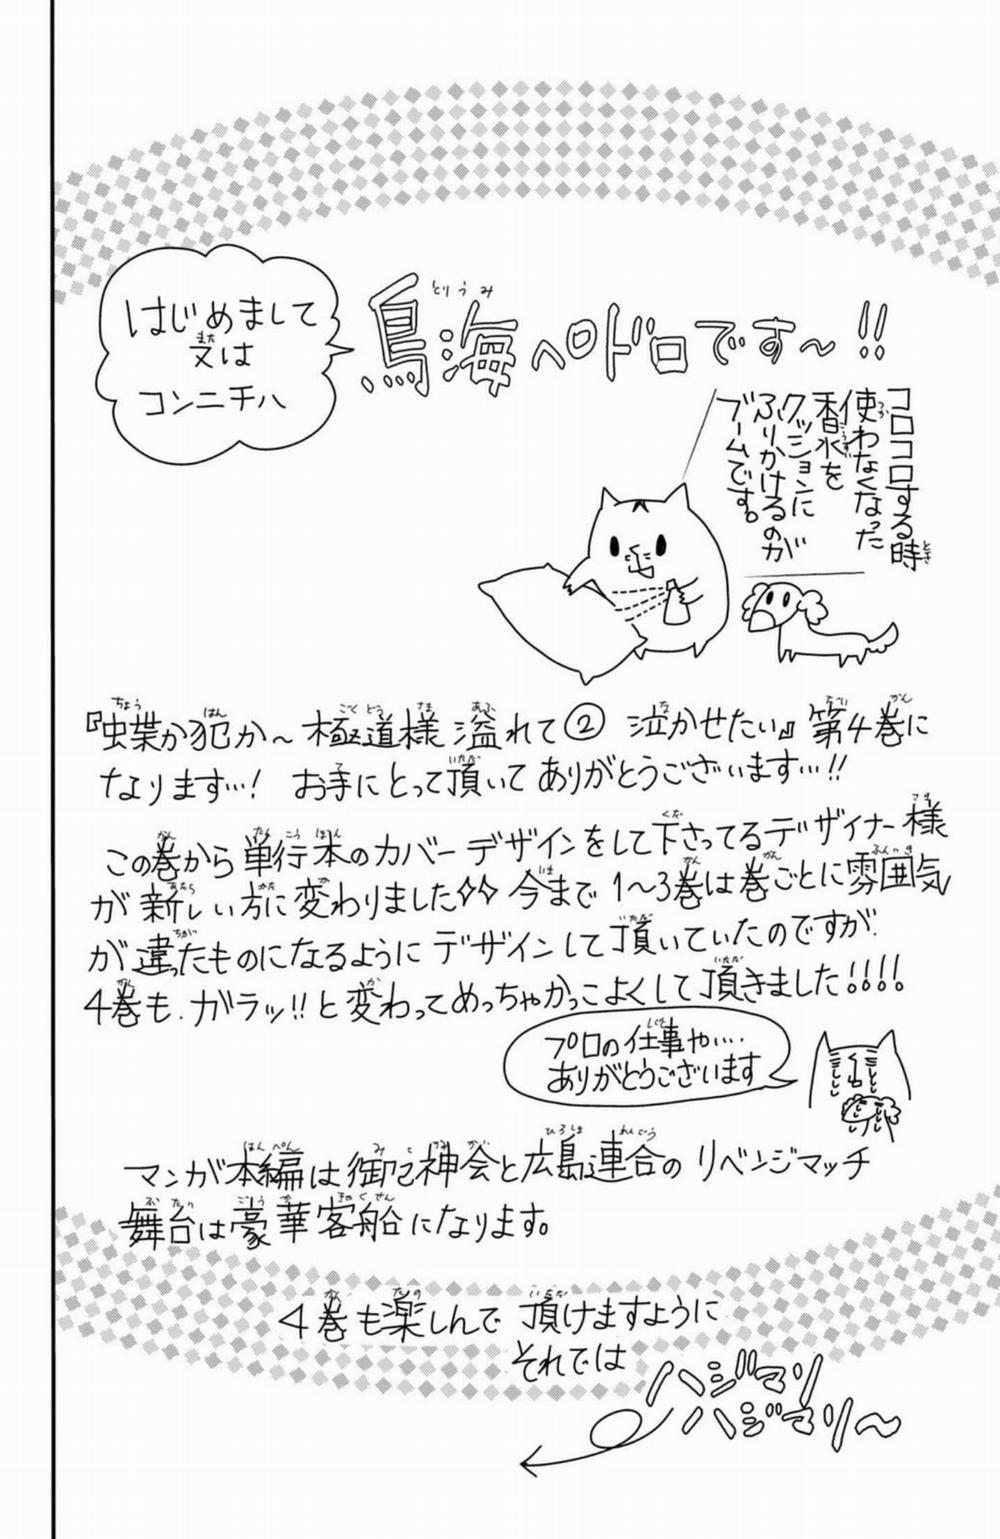 はじめまして
又は
コンニチハ
鳥海ペドロです〜!!
コロコロする時
使わなくなった
香水を
クッションに
ふりかけるのが
ブームです。
『蝶か犯か〜極道様 溢れて② 泣かせたい』第4巻に
なります…! お手にとって頂いてありがとうございます…!!
この巻から単行本のカバーデザインをして下さってるデザイナー様
が新しい方に変わりました 今まで1〜3巻は巻ごとに雰囲気
が違ったものになるようにデザインして頂いていたのですが、
4巻も、ガラッ!!と変わってめっちゃかっこよくして頂きました!!!!
プロの仕事や…
ありがとうございます
マンガ本編は御己神会と広島連合のリベンジマッチ
舞台は豪華客船になります。
4巻も楽しんで頂けますように
それでは
ハジマリ
ハジマリ〜